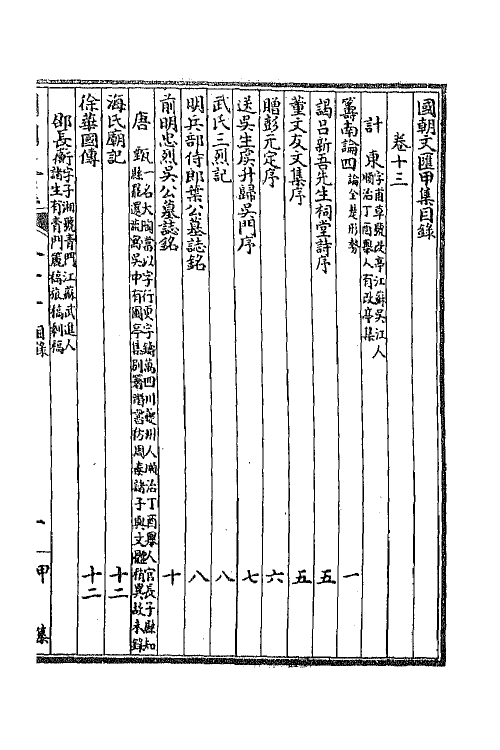 國朝文匯甲集目錄
卷十三
計東 字甫草號改亭江蘇吳江人
順治丁酉舉人有改亭集
籌南論四 論全楚形勢 一
謁呂新吾先生祠堂詩序 五
董文友文集序 五
贈彭元定序 六
送吳生虞升歸吳門序 七
武氏三烈記 八
明兵部侍郎葉公墓誌銘 八
前明忠烈吳公墓誌銘 十
唐甄 一名大陶當以字行更字鑄萬四川夔州人順治丁酉舉人官長子縣知
縣罷還流寓吳中有圃亭集別著潛書仿周秦諸子與文體稍異故未錄
海氏廟記 十二
徐華國傳 十二
邵長蘅 字子湘號青門江蘇武進人
諸生有青門簏稿旅稿剩稿
目錄
一
甲集